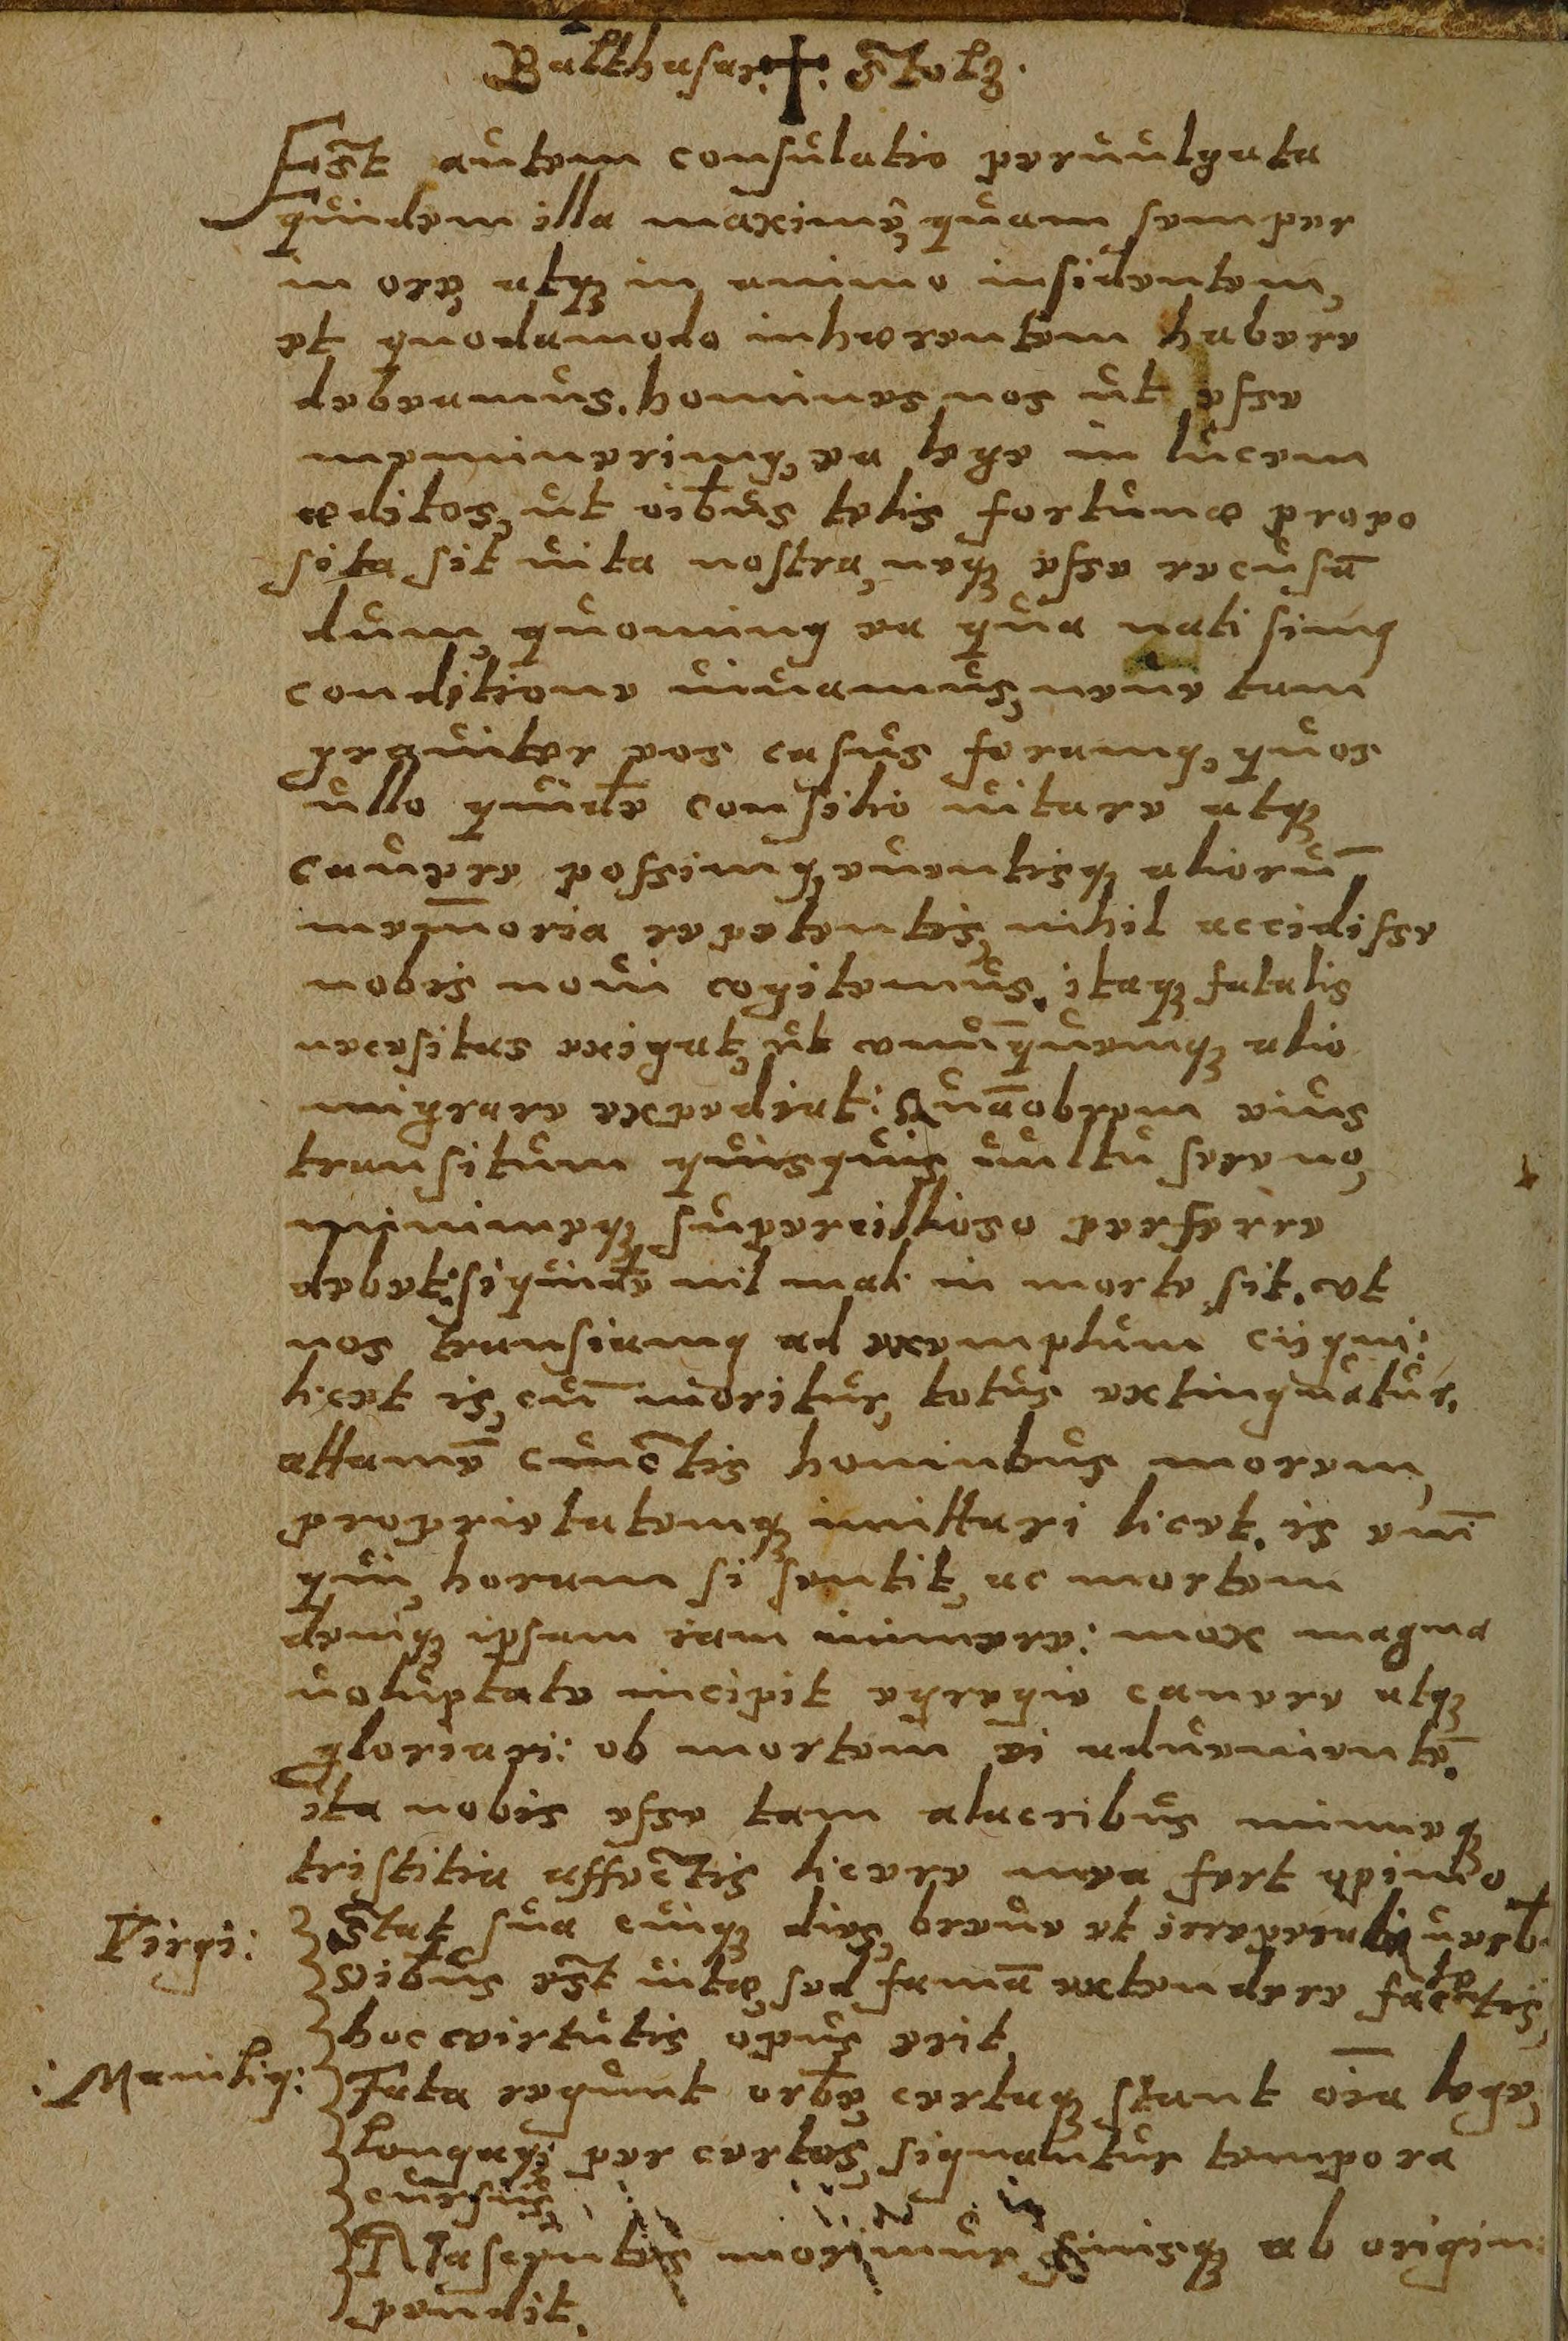 Balthasar. ✝ . Stolz.
Est autem consulatio peruulgata
quidem illa maximè, quam semper
in ore, atqꝫ in animo insidentem,
et quodamodo inhærentem habere
debeamus. homines nos ut esse
meminerimꝰ, ea lege in lucem
editos, ut oībus telis fortunæ propo
sita sit uita nostra, neqꝫ esse recusā
dum, quominꝰ ea qua nati simꝰ
conditione uiuamus, neue tam
grauiter eos casus feramꝰ, quos
ullo quidē consilio uitare atqꝫ
cauere possimꝰ, euentisqꝫ aliorū
memoria repetentis, nihil accidisse
nobis noui cogitemus. itaqꝫ fatalis
necesitas exigat, ut eumquemqꝫ alio
migrare expediat: Quāobrem eius
transitum quisquis uultu sereno,
minimeqꝫ supercillioso perferre
debet: siquidē nil mali in morte sit. vt
nos transiamꝰ ad exemplum cijgni:
licet is, cū moritur, totus extinguatur.
attamē cunctis hominbus morem,
proprietatemqꝫ imittari licet. is enī
qui, horam si sentit, ac mortem
deniqꝫ ipsam iam iminere: mox magna
uoluptate incipit egregie canere atqꝫ
gloriari: ob mortem ei aduenientē.
ita nobis esse tam alacribus nimeqꝫ
tristitia affectis licere mea fert opinio
Virgi: Stat sua cuiqꝫ dies, breue et irreperabi
Oībus est uitæ, sed famā extendere factis,
hoc virtutis opus erit
Manilꝰ: Fata regunt orbē, certaqꝫ stant oīa lege,
Longaqꝫ per certos signantur tempora
cursus,
Nascentes morimur finisqꝫ ab origin:
pendit.